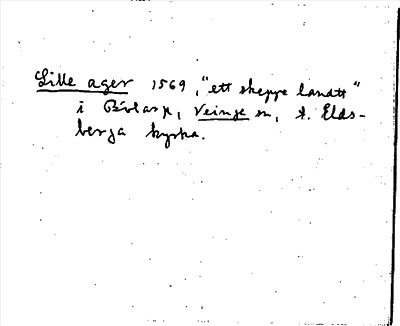 Lille ager 1569, "ett skeppe landtt"
i Bölarp, Veinge sn, t. Elds-
berga kyrka.